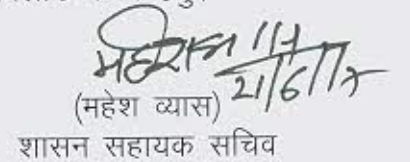 21/6/17
(महेश व्यास)
शासन सहायक सचिव